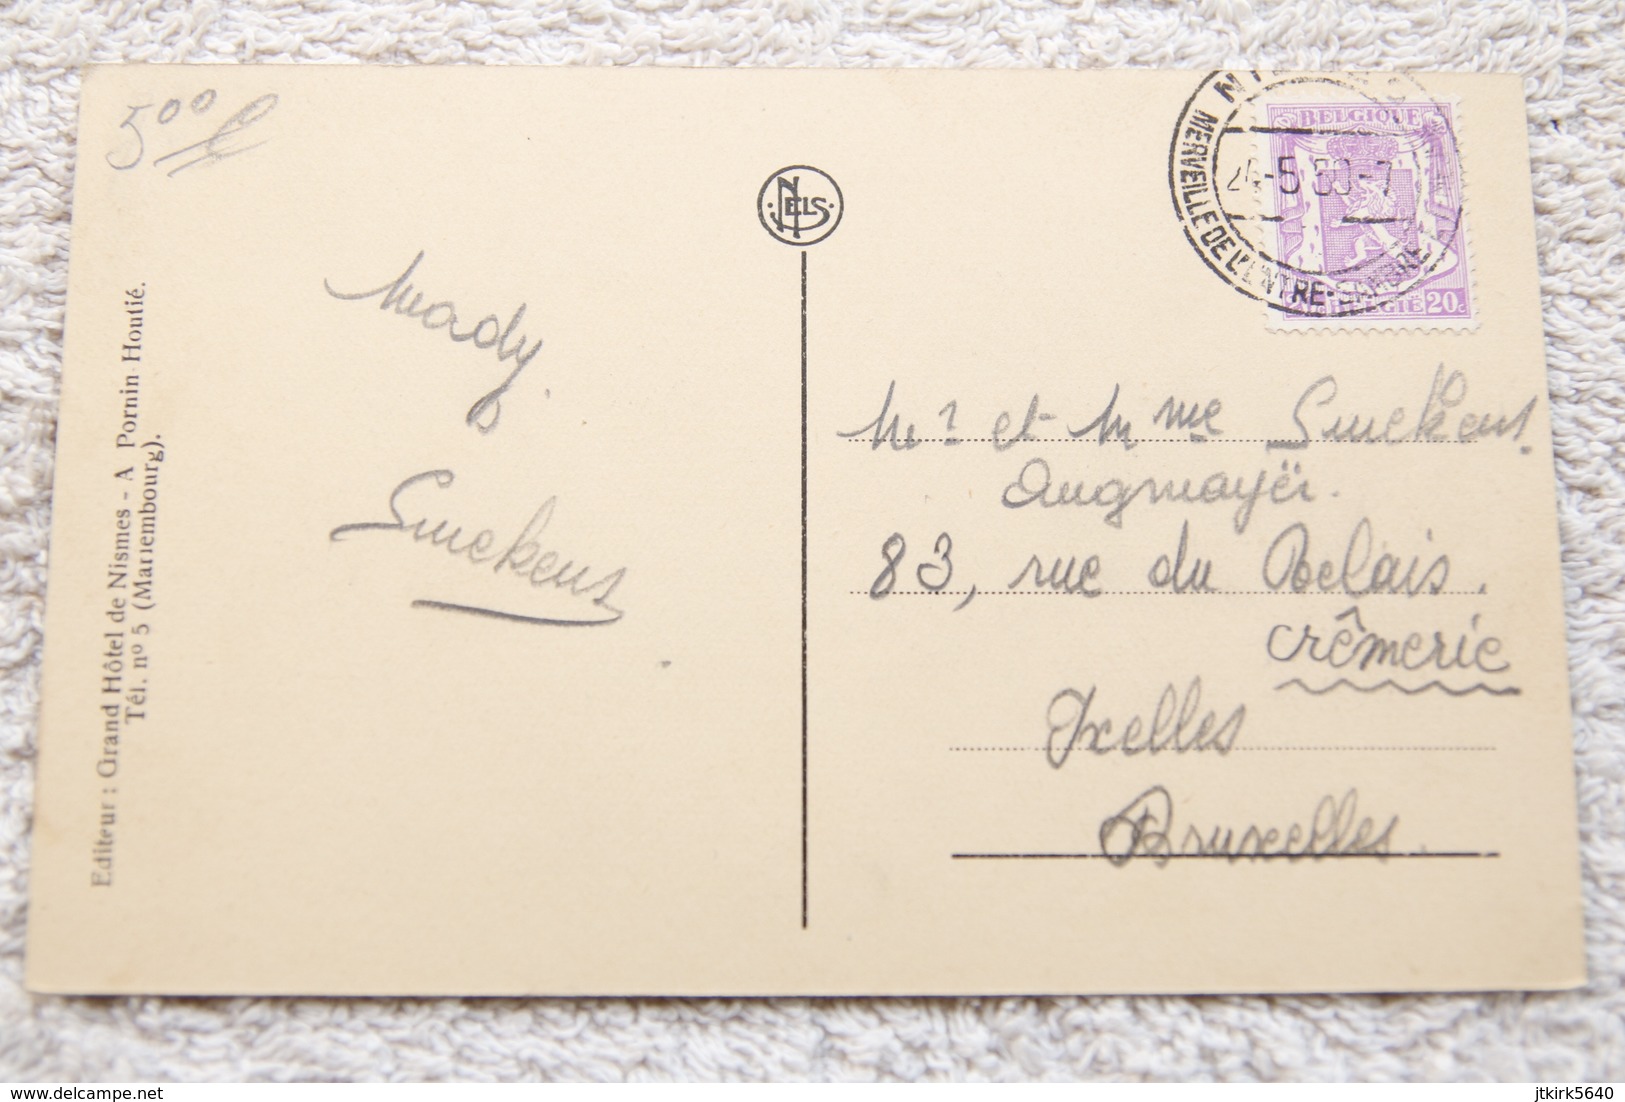 5⁰⁰
Editeur : Grand Hôtel de Nismes - A Pornin-Houtié.
Tél. nº 5 (Mariembourg).
NELS
Mady.
Smekens
MERVEILLE DE L'ENTRE-SAMBRE
-5 50-7
BELGIQUE
BELGIË 20c
Mr et Mme Smekens
Augmayër.
83, rue du Relais.
crêmerie
Ixelles
Bruxelles.
delcampe.net
jtkirk5640